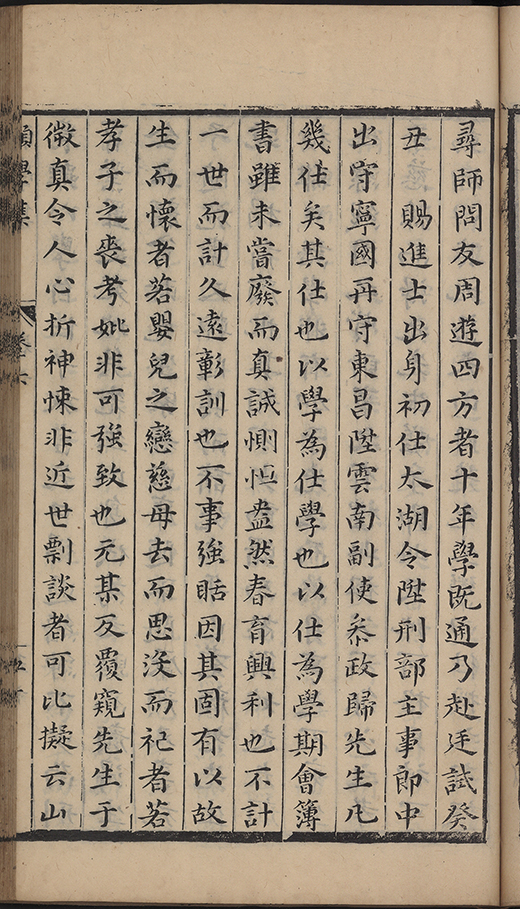 尋師問友周遊四方者十年學既通乃赴廷試癸
丑　賜進士出身初仕太湖令陞刑部主事郎中
出守寧國再守東昌陞雲南副使叅政歸先生凡
幾仕矣其仕也以學為仕學也以仕為學期會簿
書雖未嘗廢而真誠惻怛盎然春育興利也不計
一世而計久遠彰訓也不事強聒因其固有以故
生而懷者若嬰兒之戀慈母去而思沒而祀者若
孝子之喪考妣非可強致也元某反覆窺先生于
微真令人心折神悚非近世剽談者可比擬云山